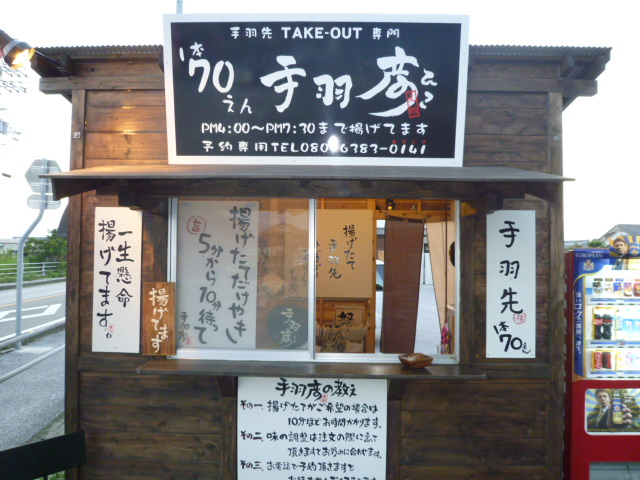 手羽先 TAKE-OUT 専門
1本
'70えん
手羽彦
PM4:00～PM7:30まで揚げてます
予約専用TEL080-6383-0141
一生懸命
揚げてます。
揚げてます
揚げたてだけやき
5分から10分待って
手羽彦
揚げたて
手羽先
手羽先
1本
70えん
手羽彦の教え
その一、揚げたてがご希望の場合は
10分ほどお時間かかります。
その二、味の調整は注文の際に言て
頂きますとお好みに合わせます。
その三、お電話で予約頂きますと
EUROPEAN